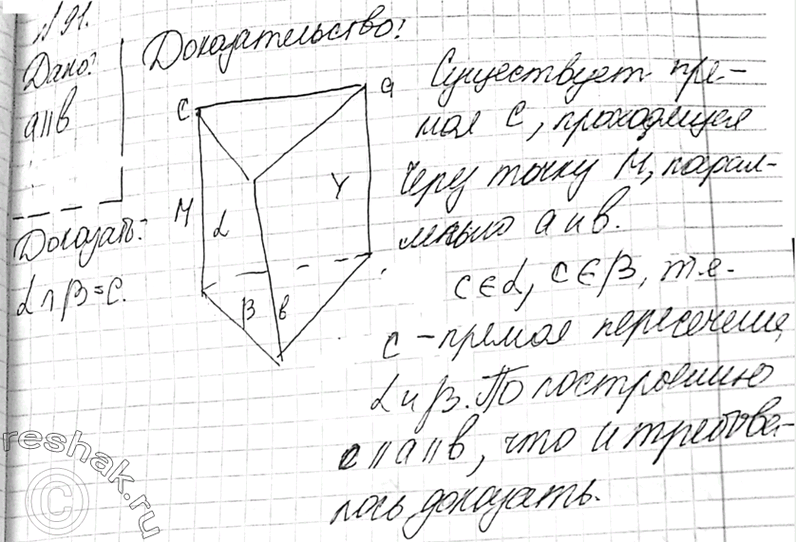 №91.
Дано:
a॥в
Доказать:
α∩β=c.
Доказательство:
C
a
M
α
γ
β
в
Существует пря-
мая C, проходящая
через точку M, парал-
лельно a и в.
c∈α, c∈β, т.е.
c - прямая пересечения
α и β. По построению
c॥a॥в, что и требова-
лось доказать.
reshak.ru